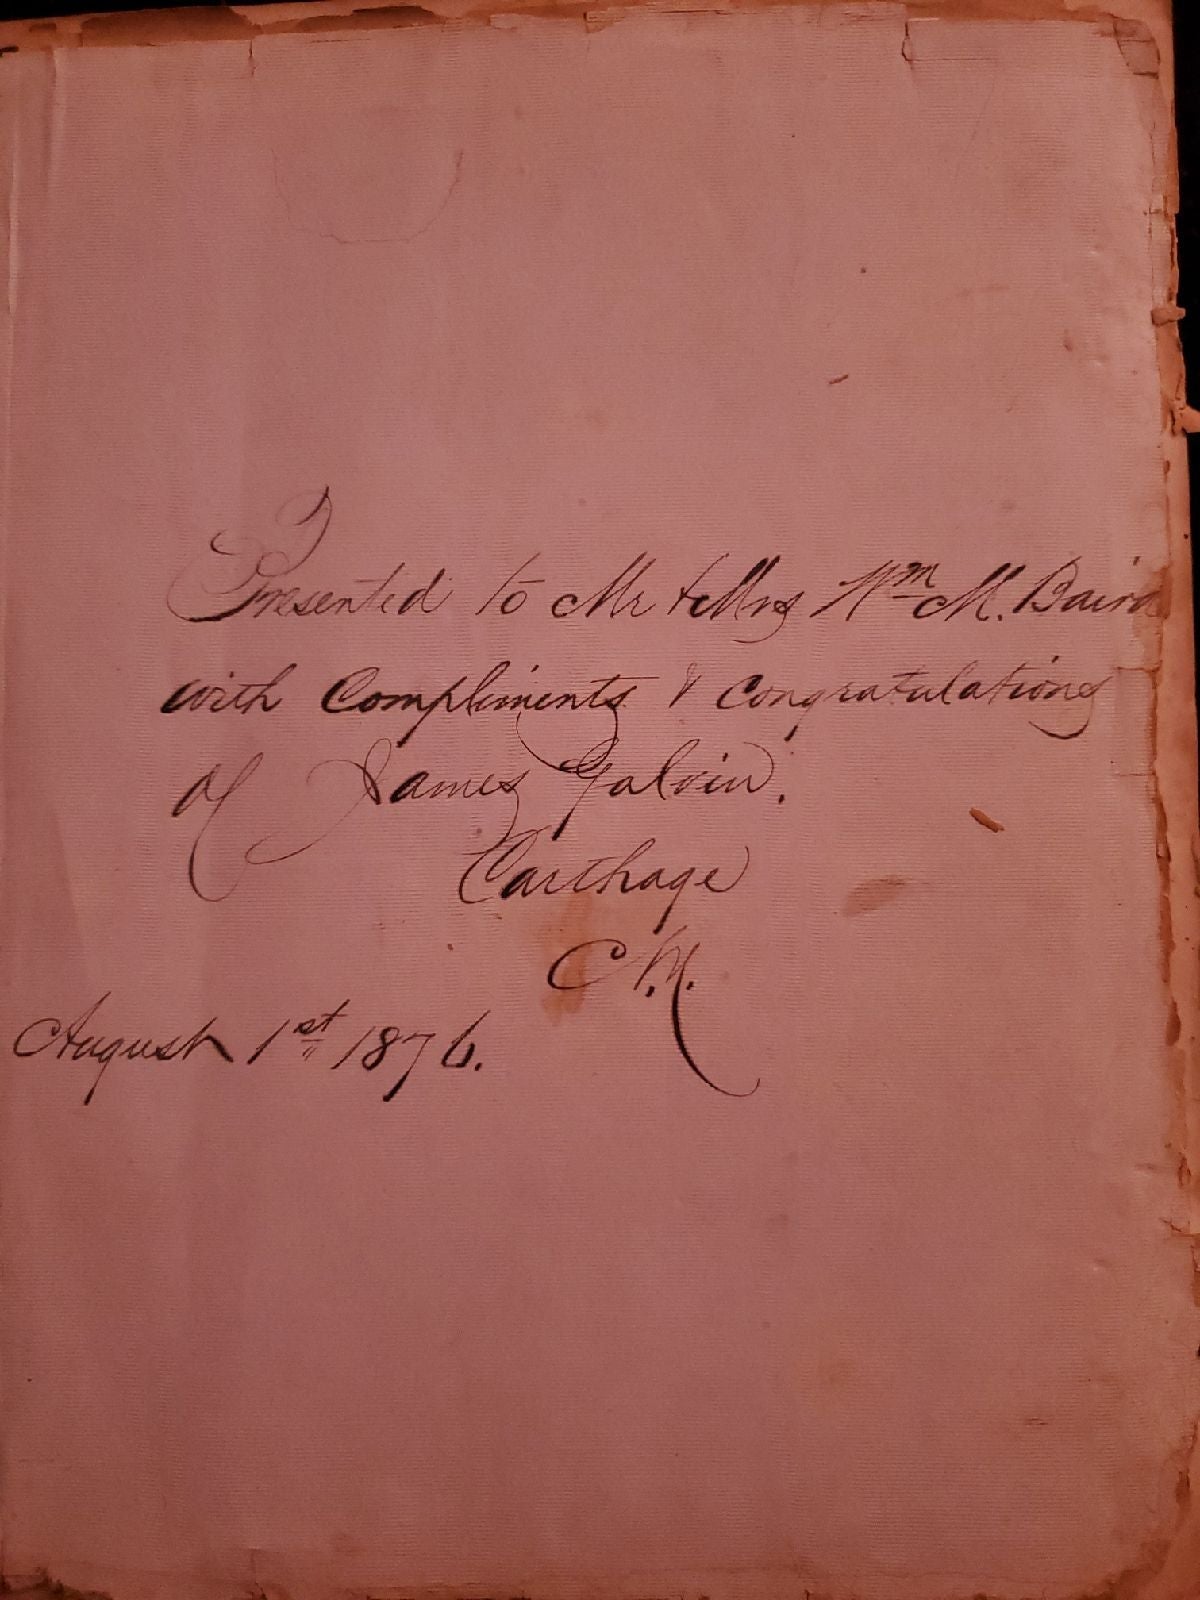 Presented to Mr & Mrs Wm M. Baird
with Compliments & Congratulations
of James Galvin.
Carthage
August 1st 1876.